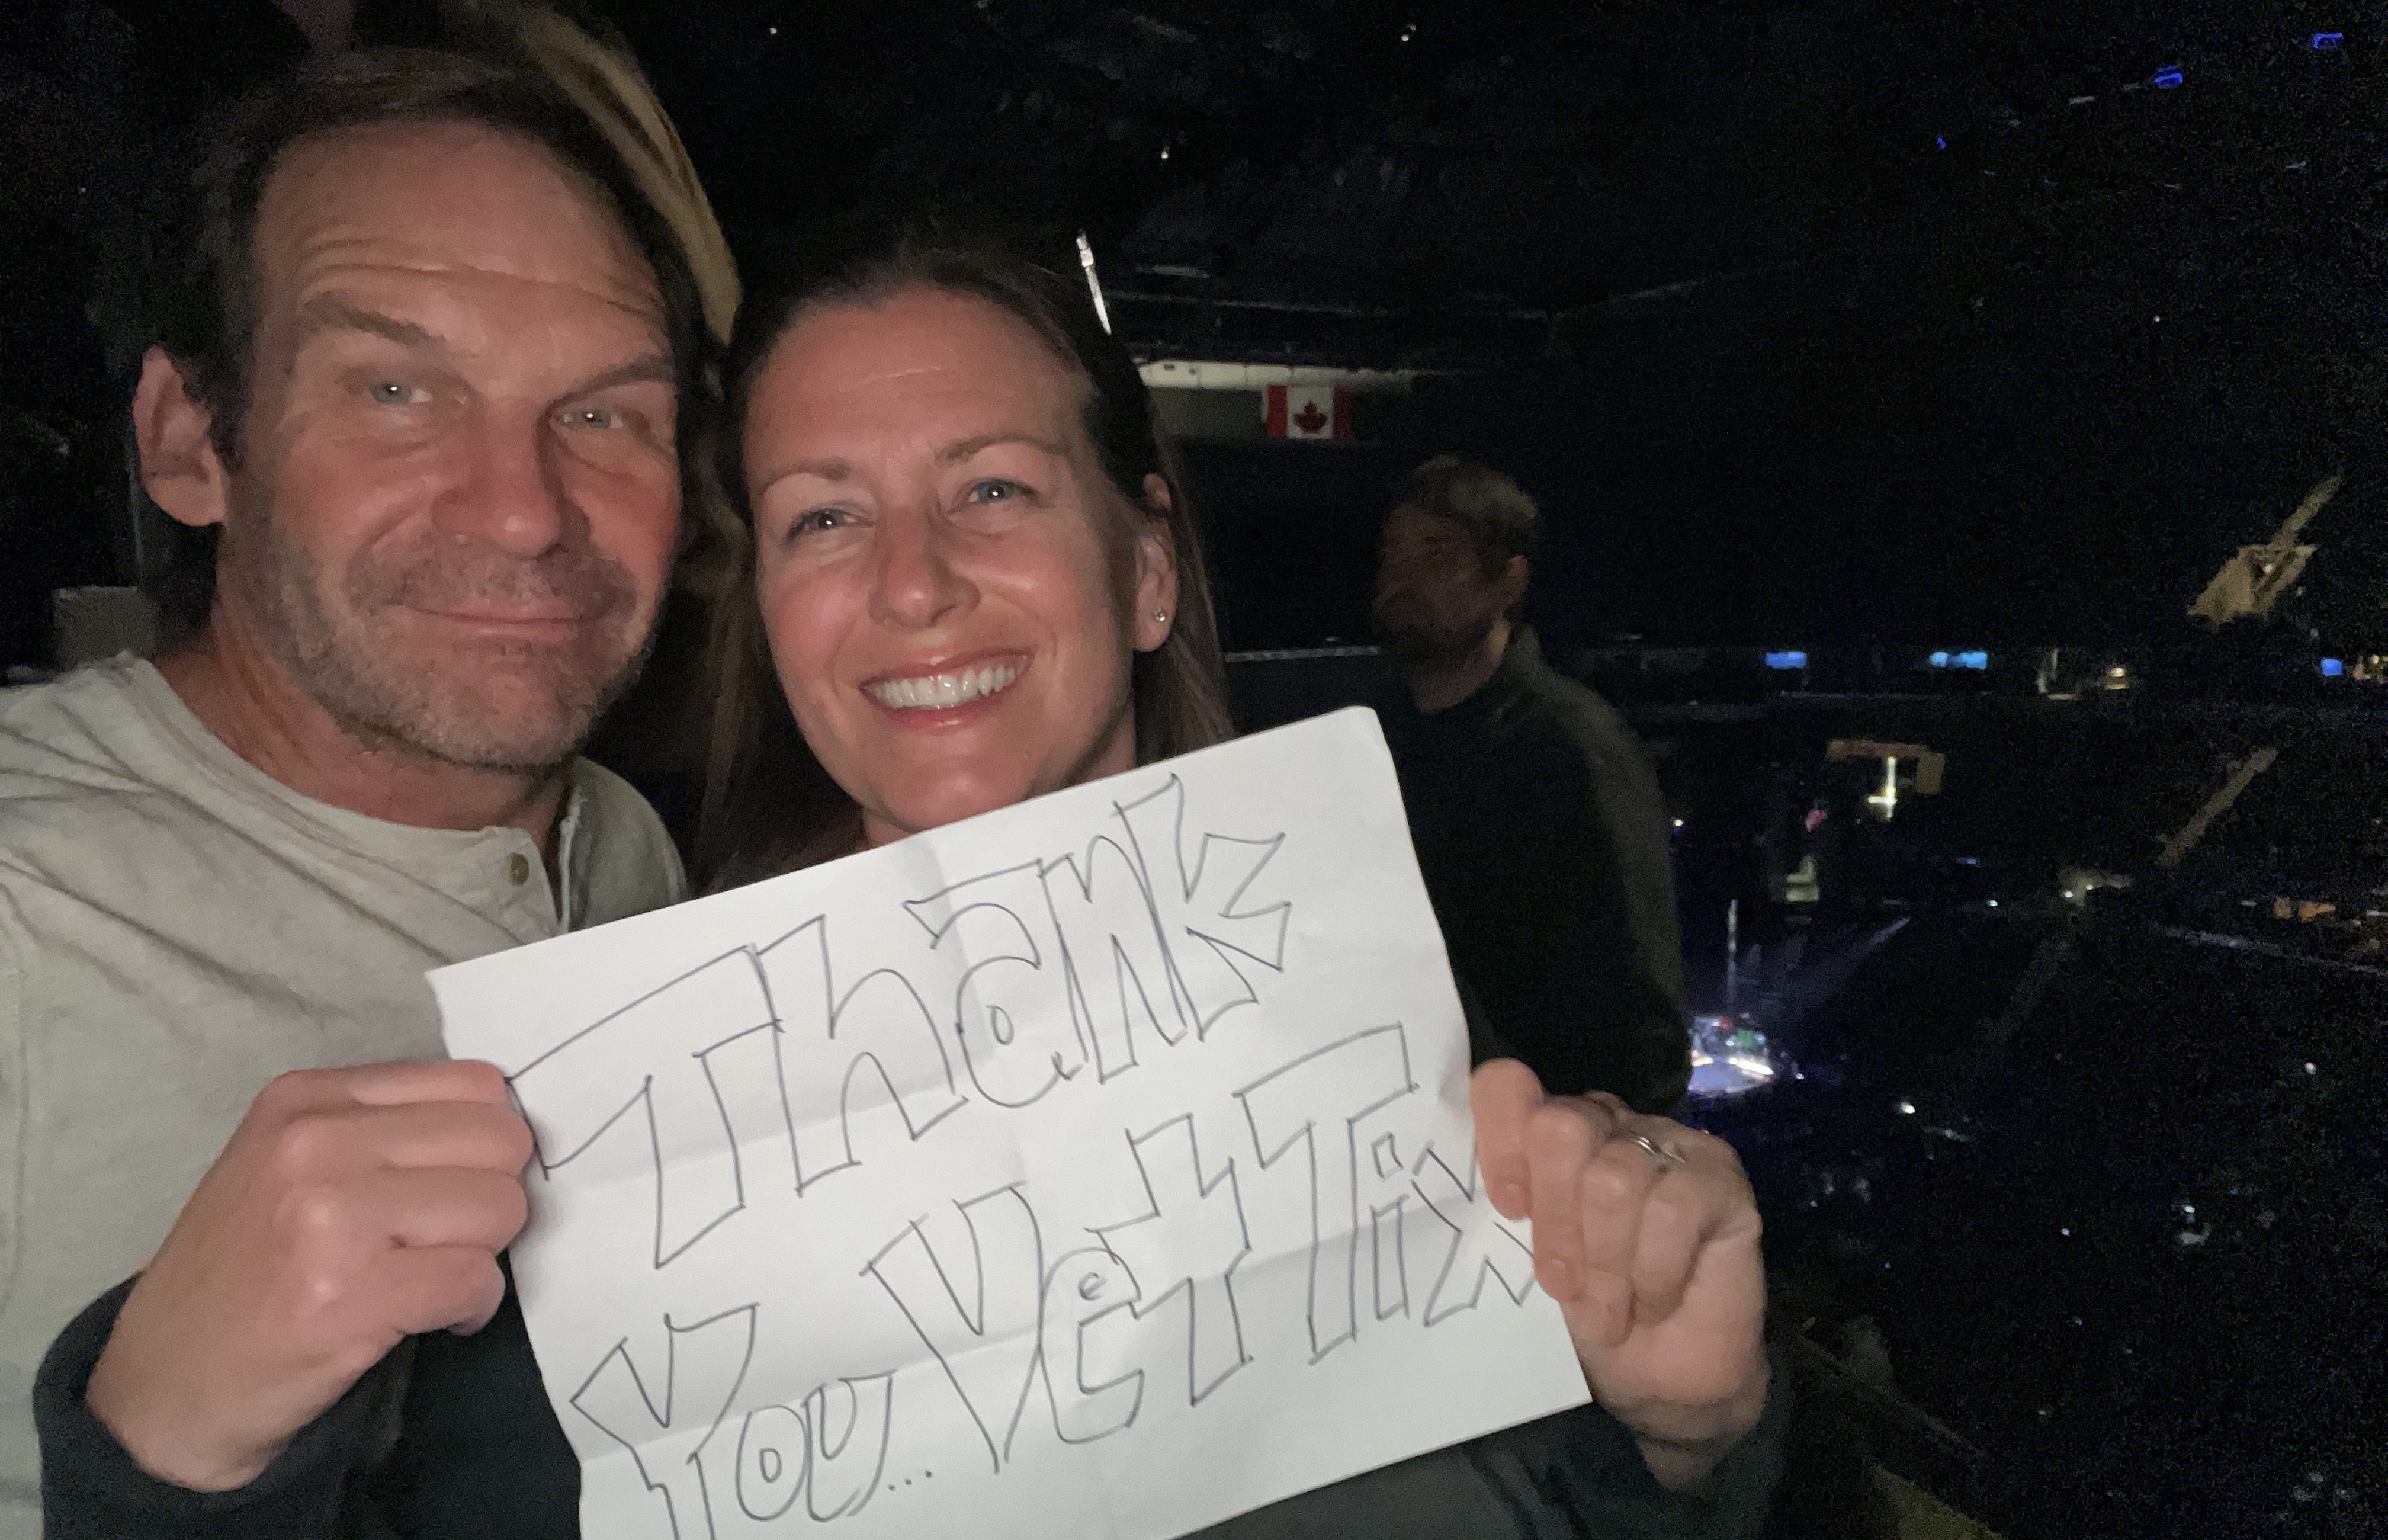 Thank
You... Vet Tix